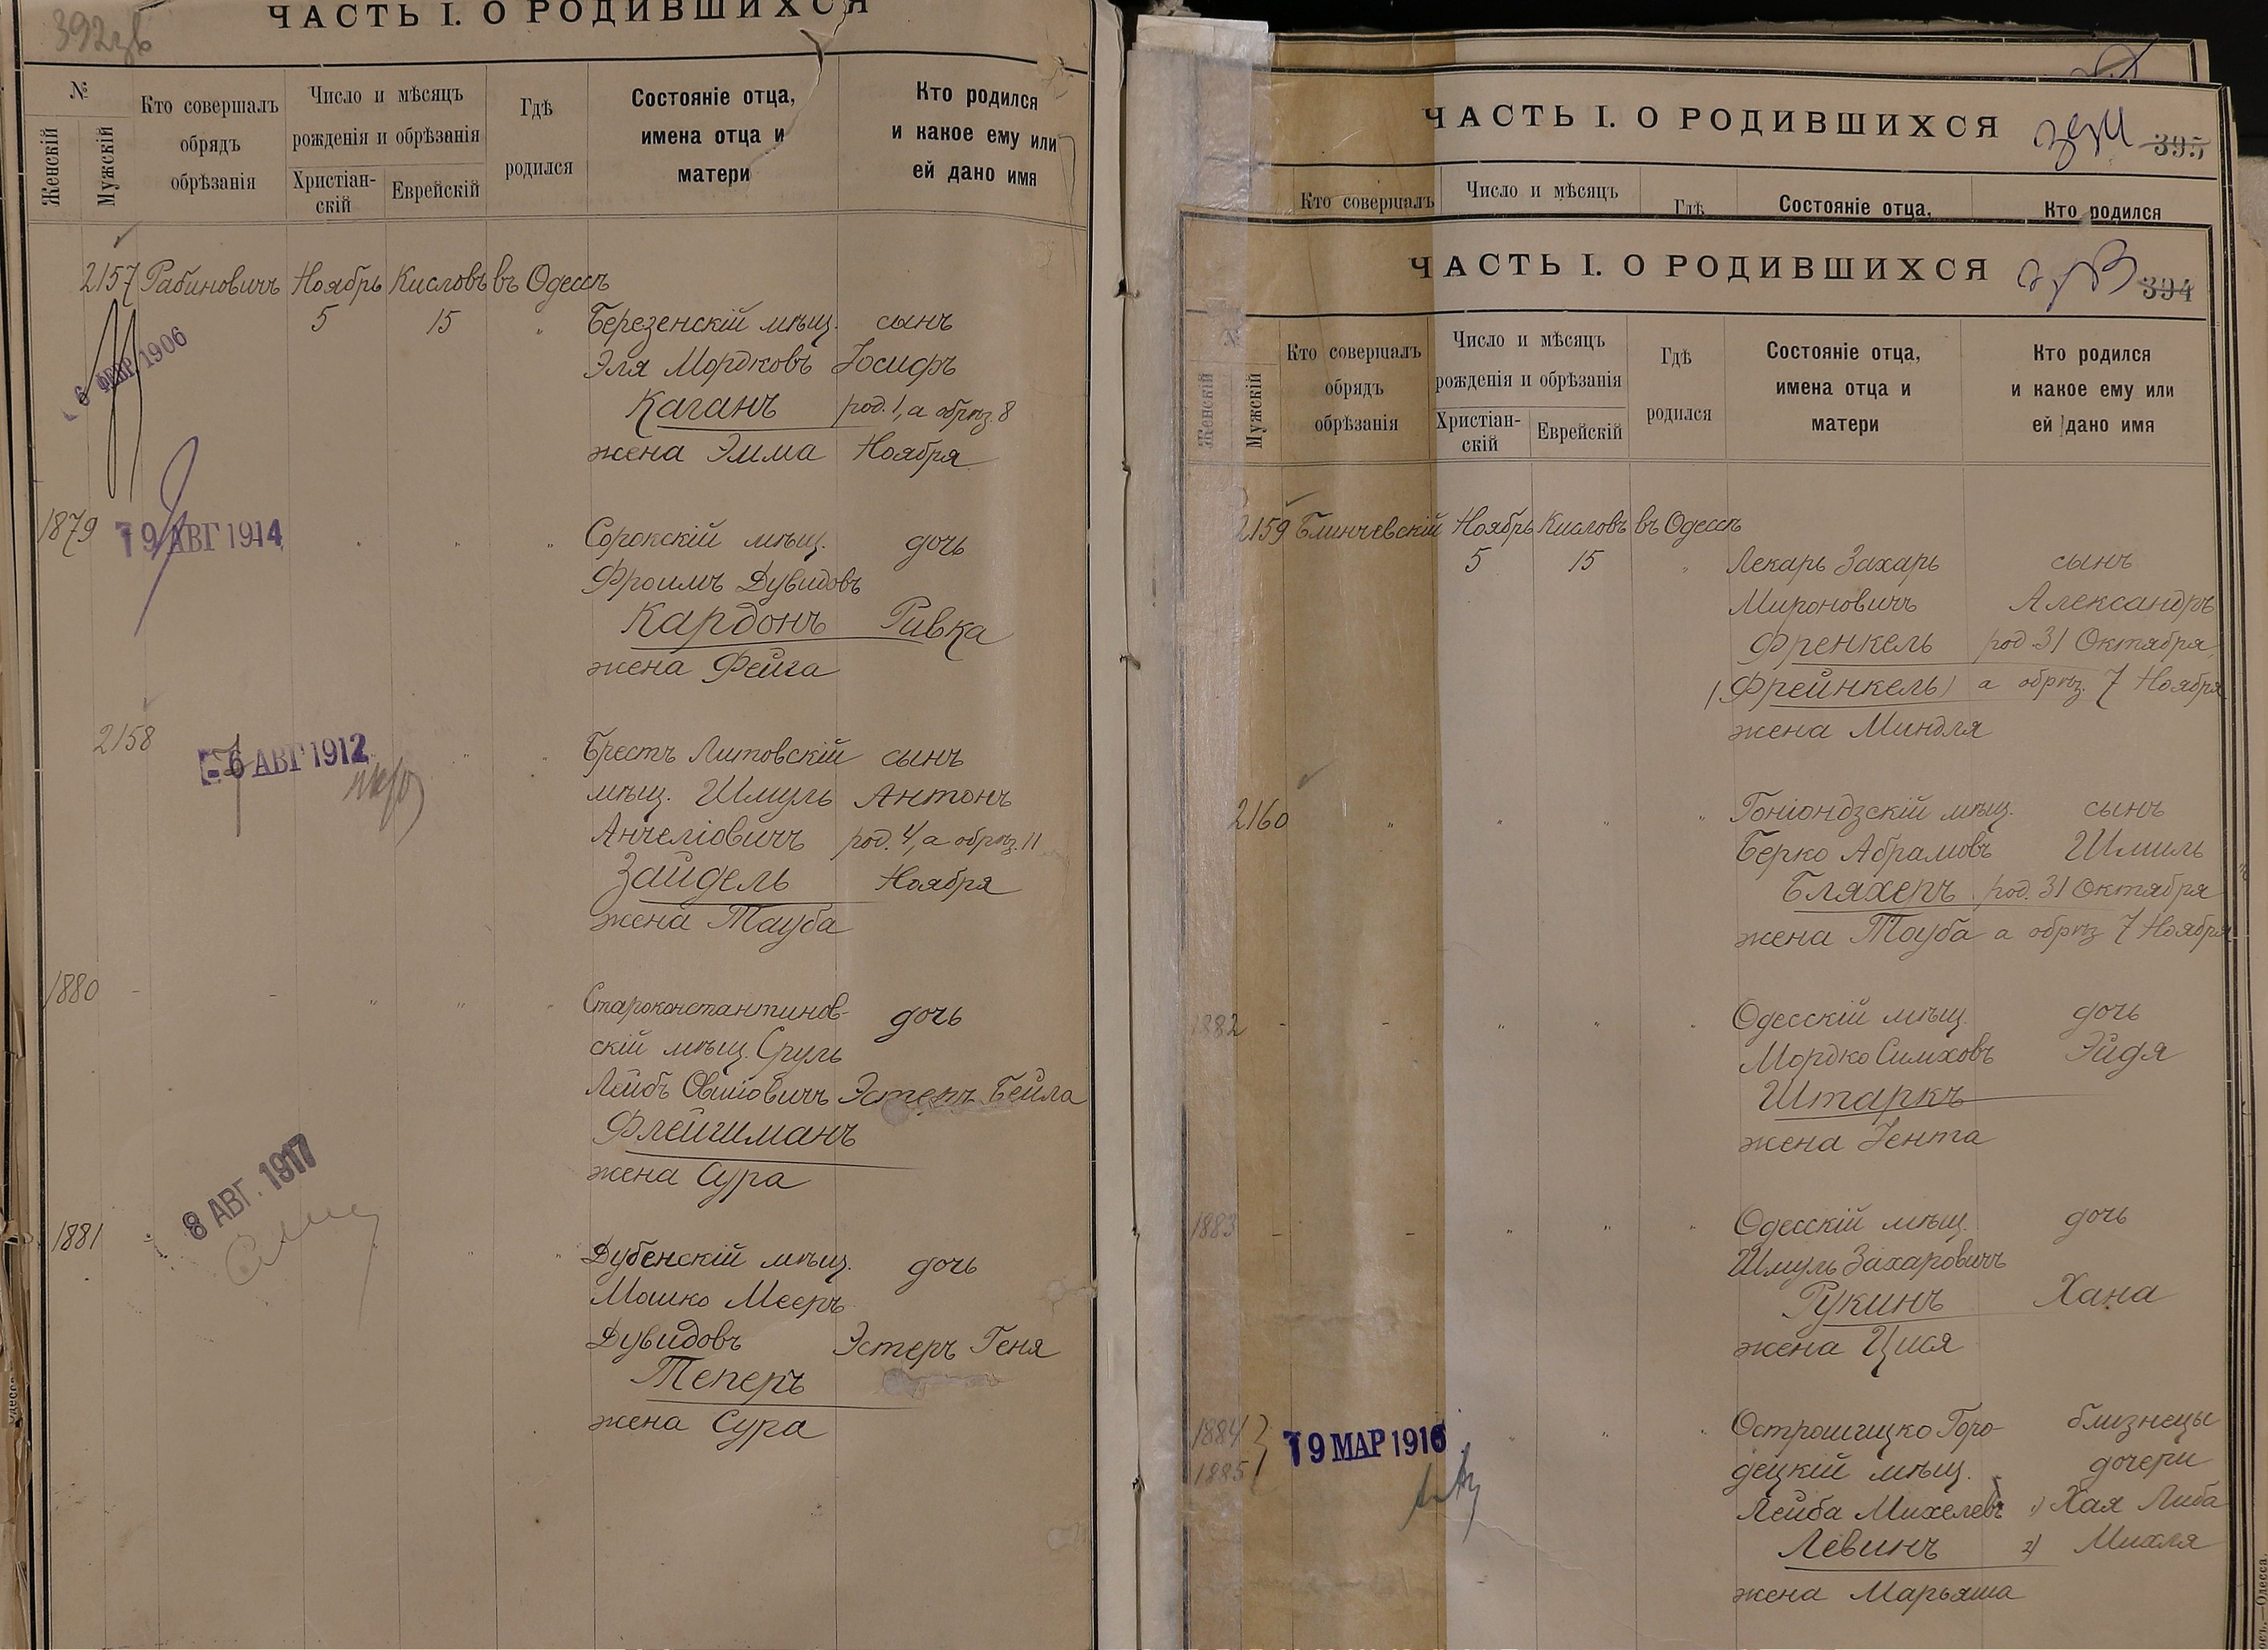 ЧАСТЬ I. О РОДИВШИХСЯ
№
Женскій
Мужскій
Кто совершалъ
обрядъ
обрѣзанія
Число и мѣсяцъ
рожденія и обрѣзанія
Христіан-
скій
Еврейскій
Гдѣ
родился
Состояніе отца,
имена отца и
матери
Кто родился
и какое ему или
ей дано имя
2157 Рабиновичъ Ноябрь Кисловъ въ Одессѣ
5 15 " Березенскій мѣщ. сынъ
6 ФЕВР. 1906
Эля Мордковъ Іосифъ
Каганъ род. 1, а обрѣз. 8
жена Эмма Ноября
1879 19 АВГ 1914 " " " Сорокскій мѣщ. дочь
Фроимъ Дувидовъ
Кардонъ Ривка
жена Фейга
2158 - 6 АВГ 1912 " " Брестъ Литовскій сынъ
мѣщ. Шмуль Антонъ
Анчеліовичъ род. 4, а обрѣз. 11
Зайдель Ноября
жена Тауба
1880 - - " " " Староконстантинов- дочь
скій мѣщ. Сруль
Лейбъ Овшіовичъ Эстеръ Бейла
Флейшманъ
жена Сура
8 АВГ. 1917
1881 " " Дубенскій мѣщ. дочь
Мошко Мееръ
Дувидовъ Эстеръ Геня
Теперъ
жена Сура
ЧАСТЬ I. О РОДИВШИХСЯ 395
Кто совершалъ Число и мѣсяцъ Гдѣ Состояніе отца, Кто родился
ЧАСТЬ I. О РОДИВШИХСЯ 394
№
Женскій
Мужскій
Кто совершалъ
обрядъ
обрѣзанія
Число и мѣсяцъ
рожденія и обрѣзанія
Христіан-
скій
Еврейскій
Гдѣ
родился
Состояніе отца,
имена отца и
матери
Кто родился
и какое ему или
ей дано имя
2159 Блинчевскій Ноябрь Кисловъ въ Одессѣ
5 15 " Лекарь Захарь сынъ
Мироновичъ Александръ
Френкель род. 31 Октября,
(Фрейнкель) а обрѣз. 7 Ноября
жена Миндля
2160 " " " " Гоніондзскій мѣщ. сынъ
Берко Абрамовъ Шмиль
Бляхеръ род. 31 Октября
жена Тоуба а обрѣз 7 Ноября
1882 - - " " " Одесскій мѣщ. дочь
Мордко Симховъ Эйдя
Штаркъ
жена Іента
1883 - - " " " Одесскій мѣщ. дочь
Шмуль Захаровичъ
Рукинъ Хана
жена Цися
1884 } 19 МАР 1916 " " " Острошицко Горо- близнецы
1885 децкій мѣщ. дочери
Лейба Михелевъ 1) Хая Либа
Левинъ 2) Михля
жена Марьяша